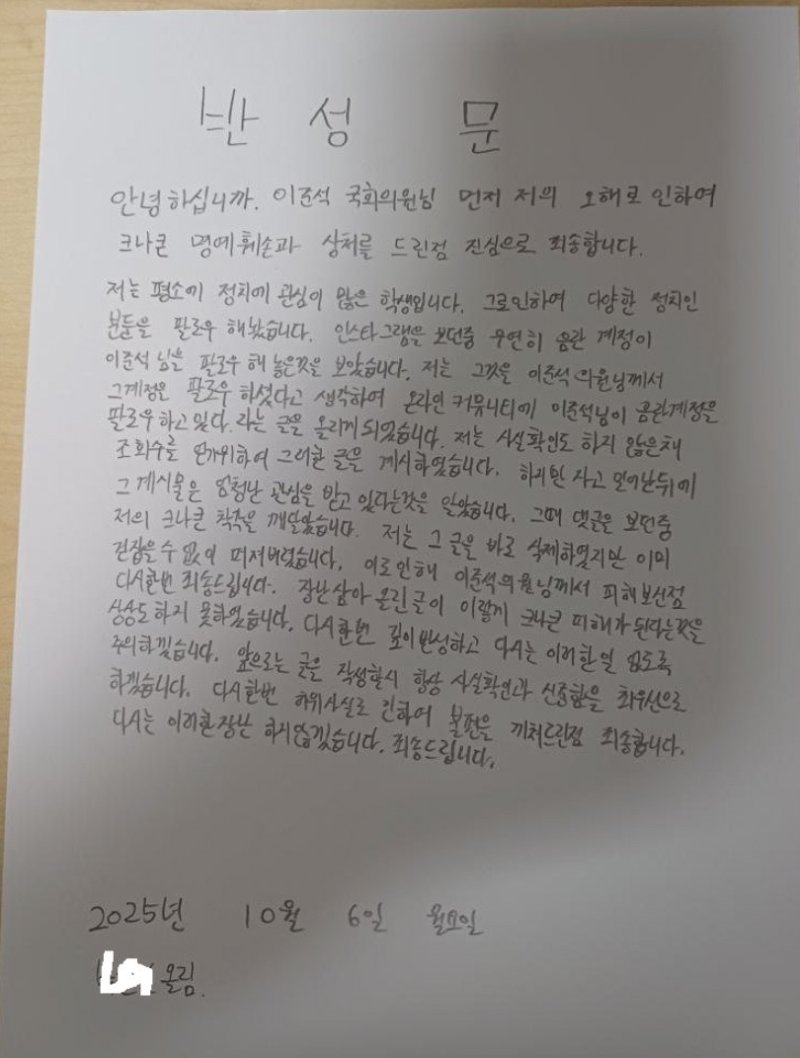 반 성 문
안녕하십니까. 이준석 국회의원님 먼저 저의 오해로 인하여
크나큰 명예훼손과 상처를 드린점 진심으로 죄송합니다.
저는 평소에 정치에 관심이 많은 학생입니다. 그로인하여 다양한 정치인
분들을 팔로우 해놨습니다. 인스타그램을 보던중 우연히 음란 계정이
이준석 님을 팔로우 해 놓은것을 보았습니다. 저는 그것을 이준석 의원님께서
그계정은 팔로우 하셨다고 생각하여 온라인 커뮤니티에 이준석님이 음란계정을
팔로우 하고 있다. 라는 글을 올리게 되었습니다. 저는 사실확인도 하지 않은채
조회수를 얻기위하여 그러한 글을 게시하였습니다. 하지만 자고 일어난뒤에
그 게시물은 엄청난 관심을 받고 있다는것을 알았습니다. 그때 댓글을 보던중
저의 크나큰 착각을 깨달았습니다. 저는 그 글을 바로 삭제하였지만 이미
걷잡을 수 없이 퍼져버렸습니다. 이로인해 이준석의원님께서 피해보신점
다시한번 죄송드립니다. 장난삼아 올린글이 이렇게 크나큰 피해가 된다는것을
상상도 하지 못하였습니다. 다시한번 깊이반성하고 다시는 이러한일 없도록
주의하겠습니다. 앞으로는 글을 작성할시 항상 사실확인과 신중함을 최우선으로
하겠습니다. 다시한번 허위사실로 인하여 불편을 끼쳐드린점 죄송합니다.
다시는 이러한장난 하지않겠습니다. 죄송드립니다.
2025년 10월 6일 월요일
올림.